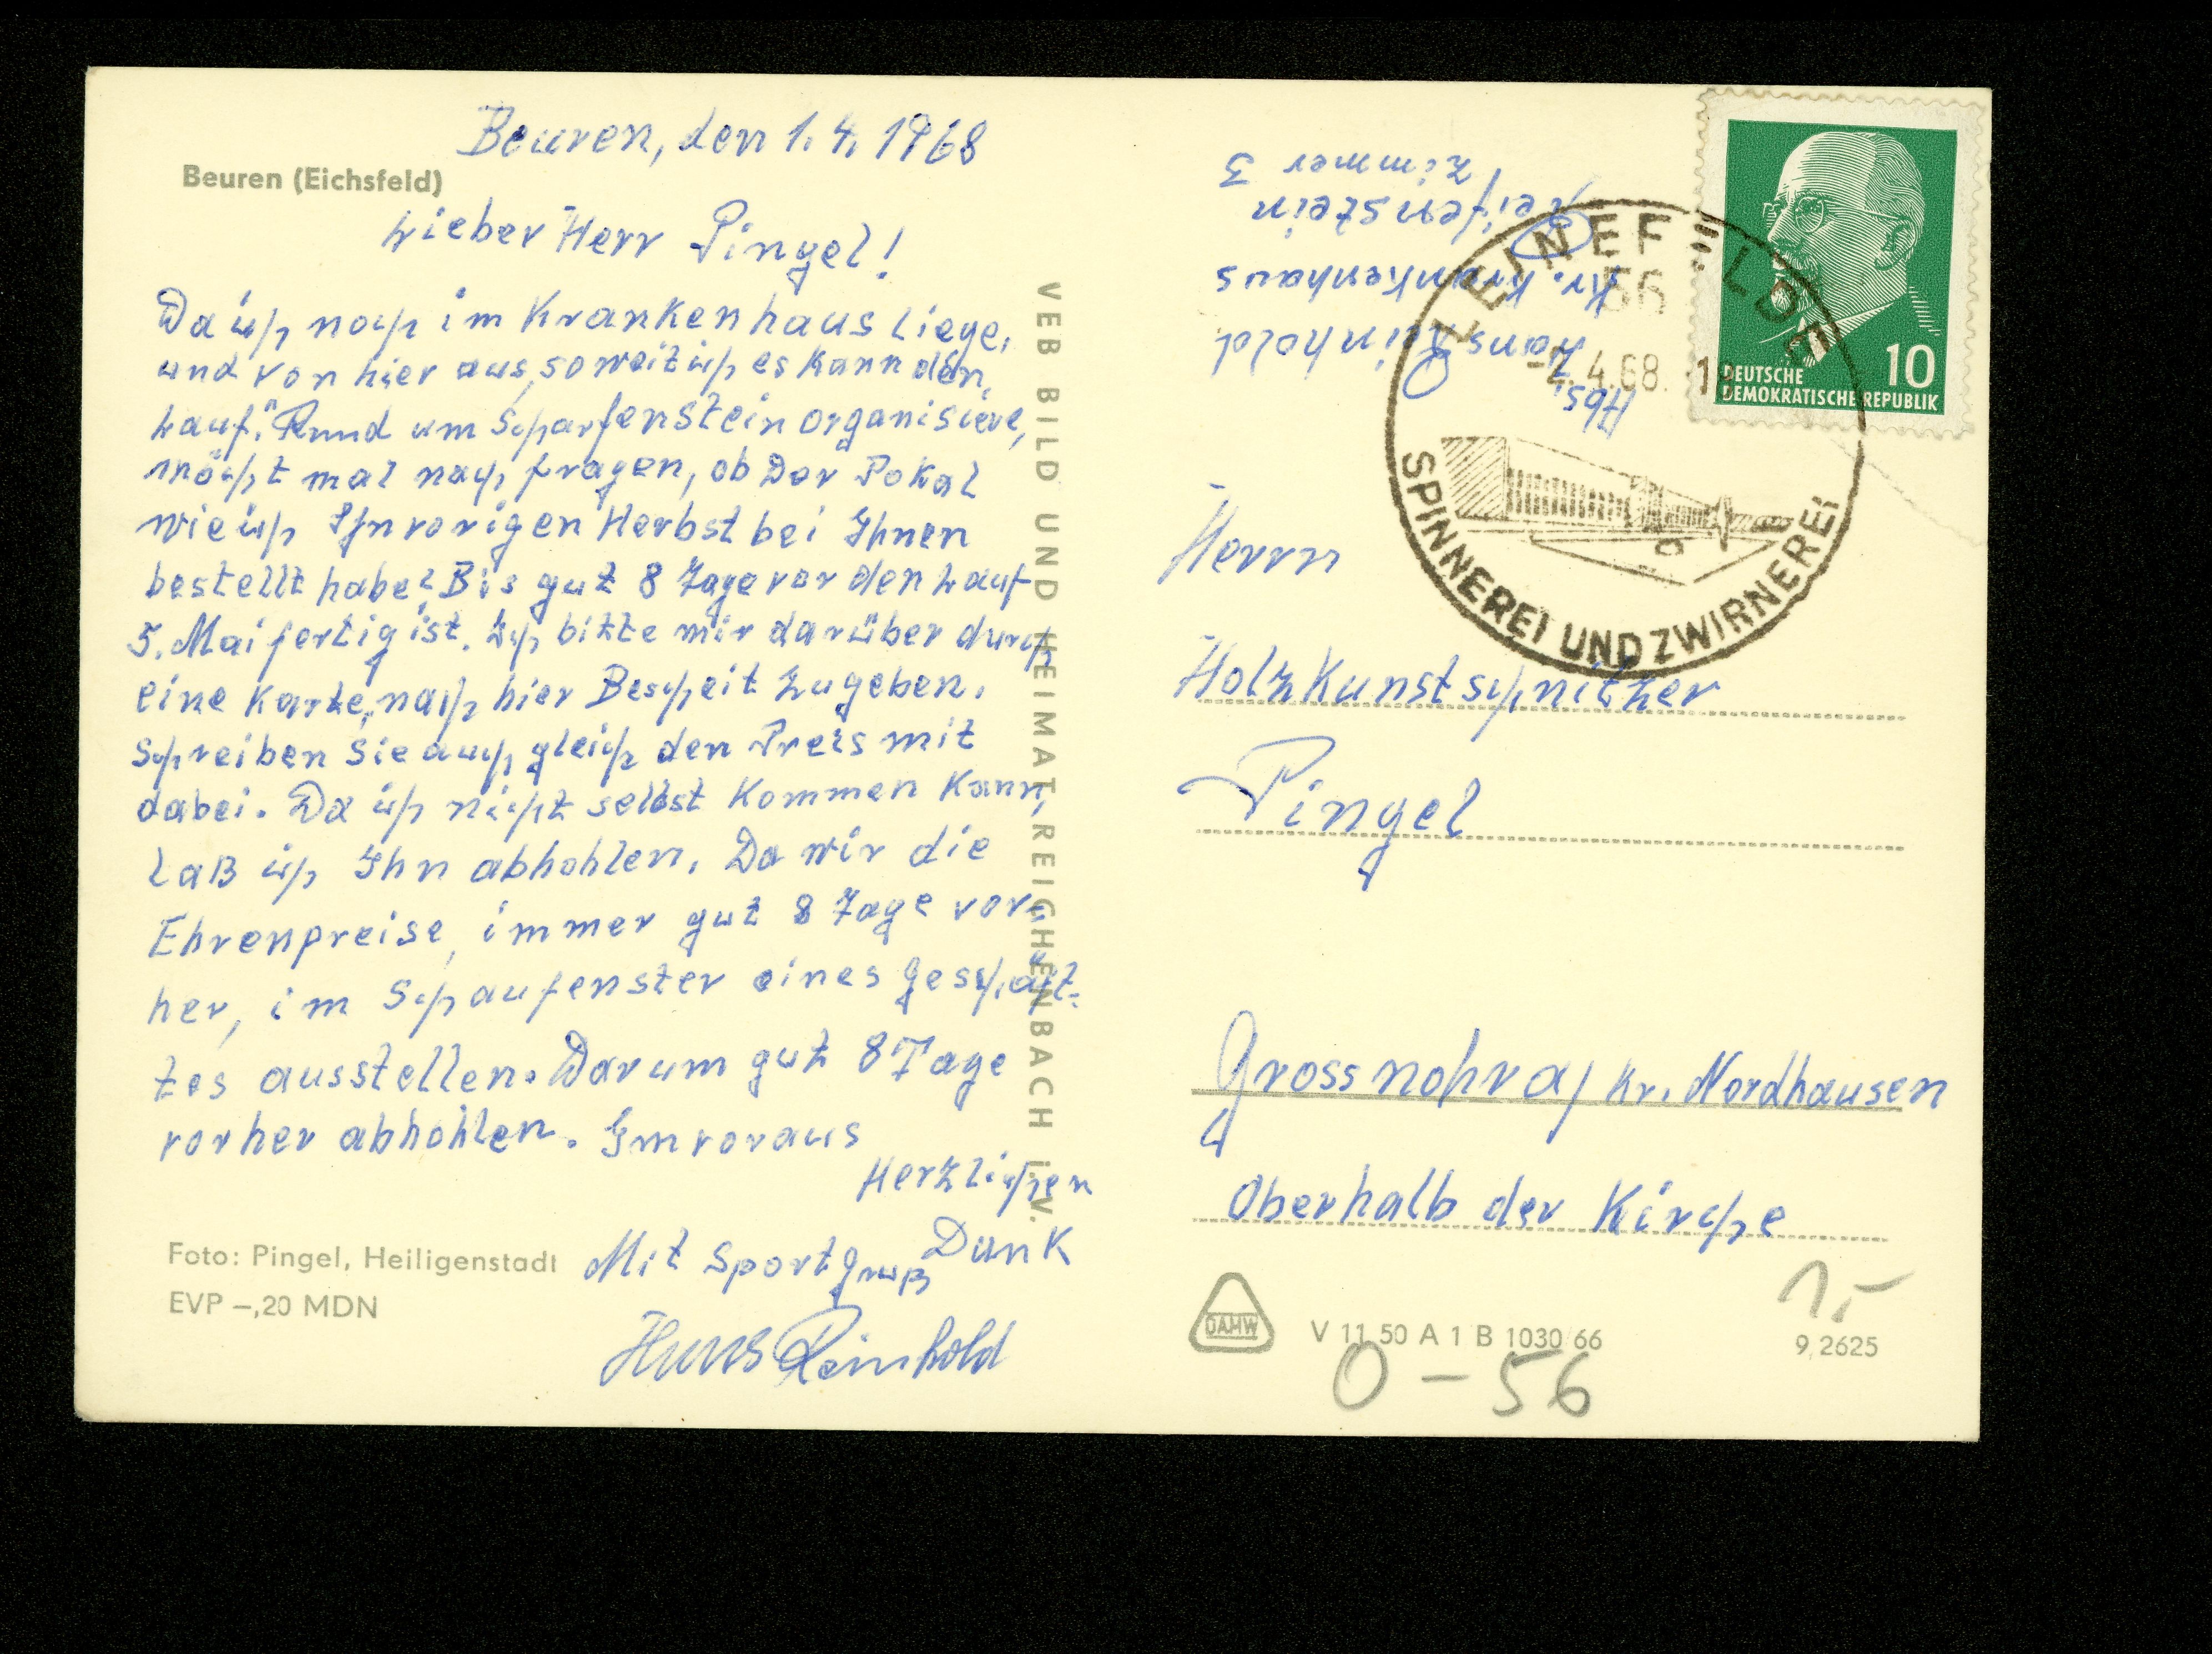 Beuren, den 1.4.1968
Beuren (Eichsfeld)
Lieber Herr Pingel!
Da ich noch im Krankenhaus Liege,
und von hier aus, soweit ich es kann den,
Lauf." Rund um Scharfenstein organisiere,
möcht mal nach fragen, ob Der Pokal
wie ich Ihn vorigen Herbst bei Ihnen
bestellt habe? Bis gut 8 Tage vor den Lauf
5. Mai fertig ist. Ich bitte mir darüber durch
eine Karte, nach hier Bescheit zugeben.
Schreiben Sie auch gleich den Preis mit
dabei. Da ich nicht selbst Kommen Kann,
Laß ich Ihn abhohlen. Da wir die
Ehrenpreise, immer gut 8 Tage vor-
her, im Schaufenster eines Geschäf-
tes ausstellen. Darum gut 8 Tage
vorher abhohlen. Im voraus
Herzlichen
Dank
Mit Sportgruß
Hans Reinhold
Foto: Pingel, Heiligenstadt
EVP –,20 MDN
VEB BILD UND HEIMAT REICHENBACH I. V.
Abs.
Hans Reinhold
Kr. Krankenhaus
Reifenstein
Zimmer 3
LEINEFELDE
56
-2.4.68. -18
SPINNEREI UND ZWIRNEREI
10
DEUTSCHE
DEMOKRATISCHE REPUBLIK
Herrn
Holzkunstschnitzer
Pingel
Grossnohra/ Kr. Nordhausen
Oberhalb der Kirche
DAMW
V 11 50 A 1 B 1030/66
9,2625
1,-
0-56